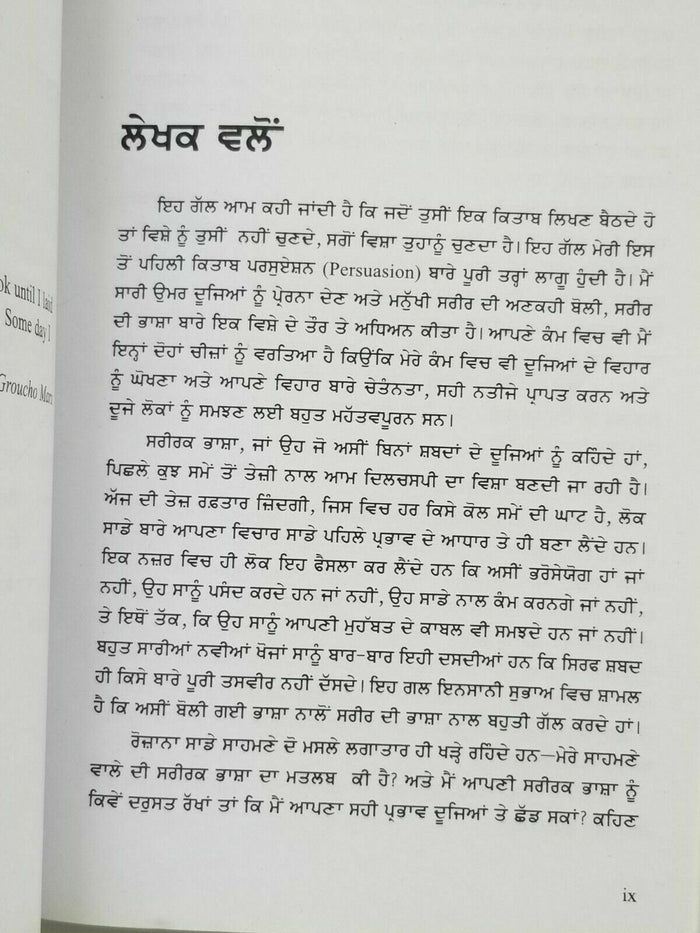 ok until I laid
Some day I
Groucho Marx
ਲੇਖਕ ਵਲੋਂ
ਇਹ ਗੱਲ ਆਮ ਕਹੀ ਜਾਂਦੀ ਹੈ ਕਿ ਜਦੋਂ ਤੁਸੀਂ ਇਕ ਕਿਤਾਬ ਲਿਖਣ ਬੈਠਦੇ ਹੋ
ਤਾਂ ਵਿਸ਼ੇ ਨੂੰ ਤੁਸੀਂ ਨਹੀਂ ਚੁਣਦੇ, ਸਗੋਂ ਵਿਸ਼ਾ ਤੁਹਾਨੂੰ ਚੁਣਦਾ ਹੈ। ਇਹ ਗੱਲ ਮੇਰੀ ਇਸ
ਤੋਂ ਪਹਿਲੀ ਕਿਤਾਬ ਪਰਸੁਏਸ਼ਨ (Persuasion) ਬਾਰੇ ਪੂਰੀ ਤਰ੍ਹਾਂ ਲਾਗੂ ਹੁੰਦੀ ਹੈ। ਮੈਂ
ਸਾਰੀ ਉਮਰ ਦੂਜਿਆਂ ਨੂੰ ਪ੍ਰੇਰਨਾ ਦੇਣ ਅਤੇ ਮਨੁੱਖੀ ਸਰੀਰ ਦੀ ਅਣਕਹੀ ਬੋਲੀ, ਸਰੀਰ
ਦੀ ਭਾਸ਼ਾ ਬਾਰੇ ਇਕ ਵਿਸ਼ੇ ਦੇ ਤੌਰ ਤੇ ਅਧਿਅਨ ਕੀਤਾ ਹੈ। ਆਪਣੇ ਕੰਮ ਵਿਚ ਵੀ ਮੈਂ
ਇਨ੍ਹਾਂ ਦੋਹਾਂ ਚੀਜ਼ਾਂ ਨੂੰ ਵਰਤਿਆ ਹੈ ਕਿਉਂਕਿ ਮੇਰੇ ਕੰਮ ਵਿਚ ਵੀ ਦੂਜਿਆਂ ਦੇ ਵਿਹਾਰ
ਨੂੰ ਘੋਖਣਾ ਅਤੇ ਆਪਣੇ ਵਿਹਾਰ ਬਾਰੇ ਚੇਤੰਨਤਾ, ਸਹੀ ਨਤੀਜੇ ਪ੍ਰਾਪਤ ਕਰਨ ਅਤੇ
ਦੂਜੇ ਲੋਕਾਂ ਨੂੰ ਸਮਝਣ ਲਈ ਬਹੁਤ ਮਹੱਤਵਪੂਰਨ ਸਨ।
ਸਰੀਰਕ ਭਾਸ਼ਾ, ਜਾਂ ਉਹ ਜੋ ਅਸੀਂ ਬਿਨਾਂ ਸ਼ਬਦਾਂ ਦੇ ਦੂਜਿਆਂ ਨੂੰ ਕਹਿੰਦੇ ਹਾਂ,
ਪਿਛਲੇ ਕੁਝ ਸਮੇਂ ਤੋਂ ਤੇਜ਼ੀ ਨਾਲ ਆਮ ਦਿਲਚਸਪੀ ਦਾ ਵਿਸ਼ਾ ਬਣਦੀ ਜਾ ਰਹੀ ਹੈ।
ਅੱਜ ਦੀ ਤੇਜ਼ ਰਫ਼ਤਾਰ ਜ਼ਿੰਦਗੀ, ਜਿਸ ਵਿਚ ਹਰ ਕਿਸੇ ਕੋਲ ਸਮੇਂ ਦੀ ਘਾਟ ਹੈ, ਲੋਕ
ਸਾਡੇ ਬਾਰੇ ਆਪਣਾ ਵਿਚਾਰ ਸਾਡੇ ਪਹਿਲੇ ਪ੍ਰਭਾਵ ਦੇ ਆਧਾਰ ਤੇ ਹੀ ਬਣਾ ਲੈਂਦੇ ਹਨ।
ਇਕ ਨਜ਼ਰ ਵਿਚ ਹੀ ਲੋਕ ਇਹ ਫੈਸਲਾ ਕਰ ਲੈਂਦੇ ਹਨ ਕਿ ਅਸੀਂ ਭਰੋਸੇਯੋਗ ਹਾਂ ਜਾਂ
ਨਹੀਂ, ਉਹ ਸਾਨੂੰ ਪਸੰਦ ਕਰਦੇ ਹਨ ਜਾਂ ਨਹੀਂ, ਉਹ ਸਾਡੇ ਨਾਲ ਕੰਮ ਕਰਨਗੇ ਜਾਂ ਨਹੀਂ,
ਤੇ ਇਥੋਂ ਤੱਕ, ਕਿ ਉਹ ਸਾਨੂੰ ਆਪਣੀ ਮੁਹੱਬਤ ਦੇ ਕਾਬਲ ਵੀ ਸਮਝਦੇ ਹਨ ਜਾਂ ਨਹੀਂ।
ਬਹੁਤ ਸਾਰੀਆਂ ਨਵੀਆਂ ਖੋਜਾਂ ਸਾਨੂੰ ਬਾਰ-ਬਾਰ ਇਹੀ ਦਸਦੀਆਂ ਹਨ ਕਿ ਸਿਰਫ ਸ਼ਬਦ
ਹੀ ਕਿਸੇ ਬਾਰੇ ਪੂਰੀ ਤਸਵੀਰ ਨਹੀਂ ਦੱਸਦੇ। ਇਹ ਗਲ ਇਨਸਾਨੀ ਸੁਭਾਅ ਵਿਚ ਸ਼ਾਮਲ
ਹੈ ਕਿ ਅਸੀਂ ਬੋਲੀ ਗਈ ਭਾਸ਼ਾ ਨਾਲੋਂ ਸਰੀਰ ਦੀ ਭਾਸ਼ਾ ਨਾਲ ਬਹੁਤੀ ਗੱਲ ਕਰਦੇ ਹਾਂ।
ਰੋਜ਼ਾਨਾ ਸਾਡੇ ਸਾਹਮਣੇ ਦੋ ਮਸਲੇ ਲਗਾਤਾਰ ਹੀ ਖੜ੍ਹੇ ਰਹਿੰਦੇ ਹਨ—ਮੇਰੇ ਸਾਹਮਣੇ
ਵਾਲੇ ਦੀ ਸਰੀਰਕ ਭਾਸ਼ਾ ਦਾ ਮਤਲਬ ਕੀ ਹੈ? ਅਤੇ ਮੈਂ ਆਪਣੀ ਸਰੀਰਕ ਭਾਸ਼ਾ ਨੂੰ
ਕਿਵੇਂ ਦਰੁਸਤ ਰੱਖਾਂ ਤਾਂ ਕਿ ਮੈਂ ਆਪਣਾ ਸਹੀ ਪ੍ਰਭਾਵ ਦੂਜਿਆਂ ਤੇ ਛੱਡ ਸਕਾਂ? ਕਹਿਣ
ix